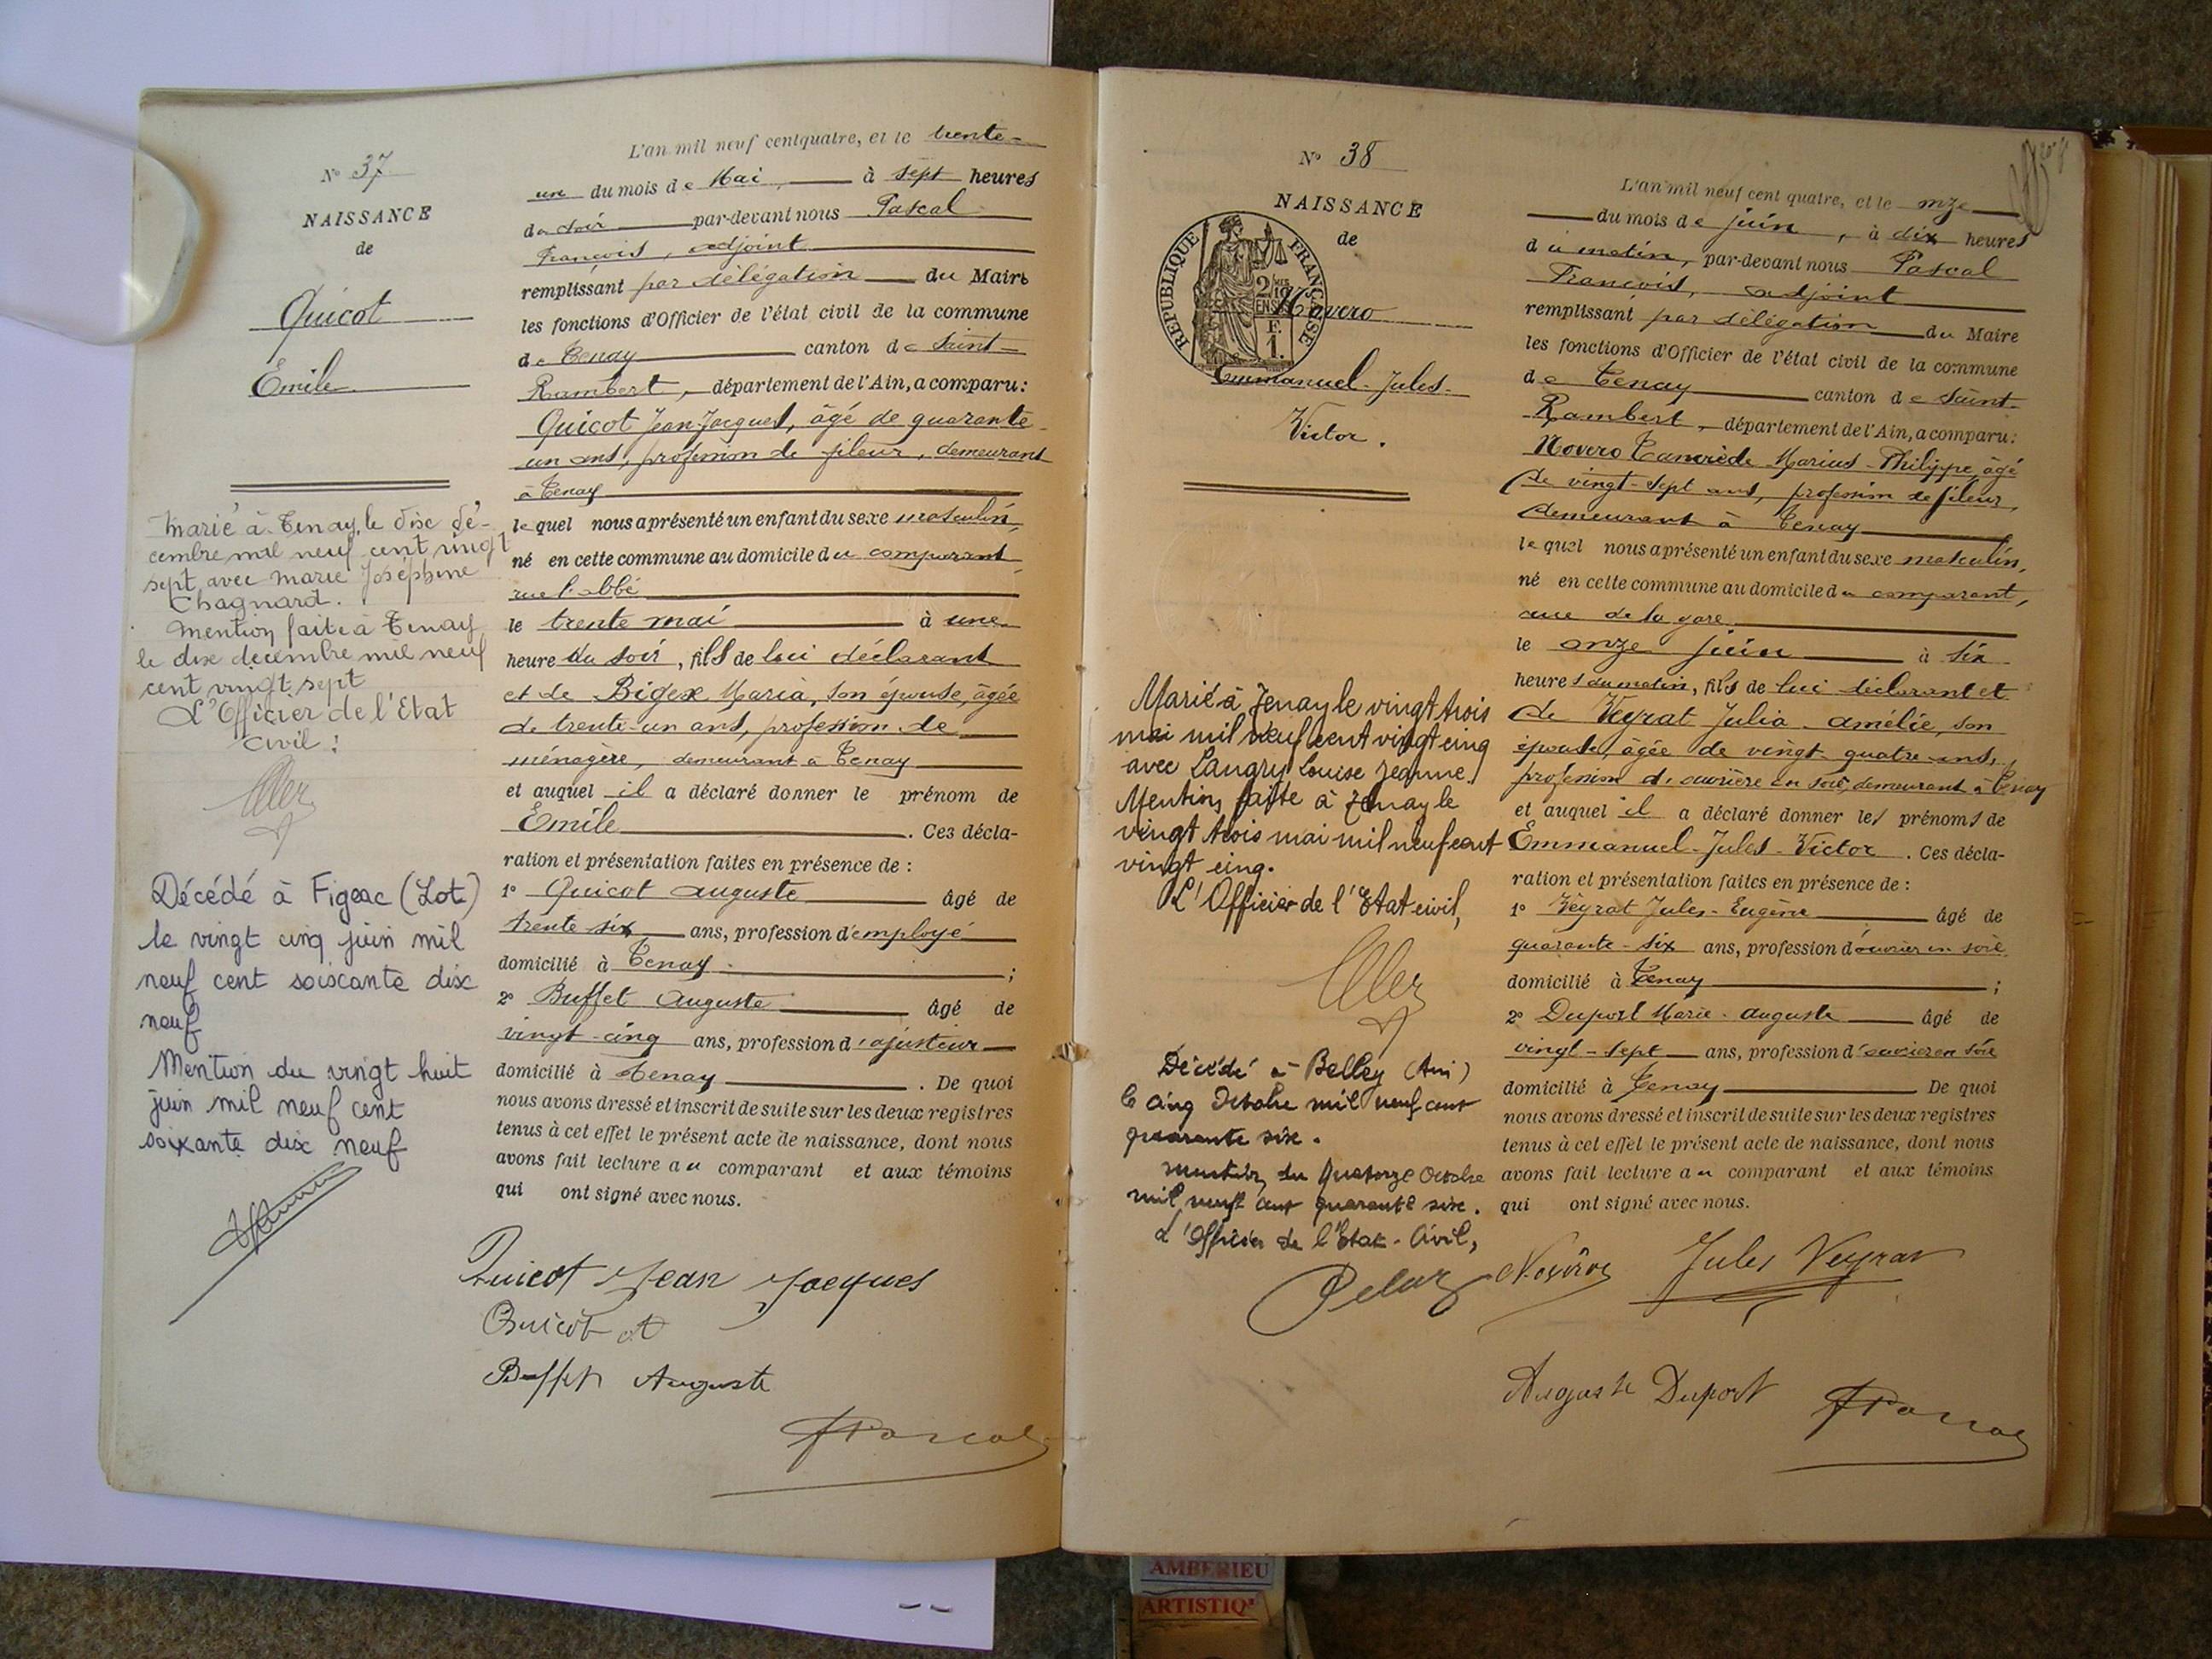 N° 37
NAISSANCE
de
Quicot
Emile
Marié à Tenay, le dix dé-
cembre mil neuf cent vingt
sept, avec Marie Joséphine
Chagnard.
Mention faite à Tenay
le dix décembre mil neuf
cent vingt sept
L'Officier de l'Etat
civil :
Décédé à Figeac (Lot)
le vingt cinq juin mil
neuf cent soixante dix
neuf
Mention du vingt huit
juin mil neuf cent
soixante dix neuf
L'an mil neuf cent quatre, et le trente-
un du mois de Mai, à sept heures
du soir par-devant nous Pascal
François, adjoint
remplissant par délégation du Maire
les fonctions d'Officier de l'état civil de la commune
de Tenay canton de Saint-
Rambert, département de l'Ain, a comparu :
Quicot Jean-Jacques, âgé de quarante-
un ans, profession de fileur, demeurant
à Tenay
lequel nous a présenté un enfant du sexe masculin,
né en cette commune au domicile du comparant,
rue l'abbé
le trente mai à une
heure du soir, fils de lui déclarant
et de Bigex Maria, son épouse, âgée
de trente-un ans, profession de
ménagère, demeurant à Tenay
et auquel il a déclaré donner le prénom de
Emile. Ces décla-
ration et présentation faites en présence de :
1° Quicot Auguste âgé de
trente six ans, profession d'employé
domicilié à Tenay ;
2° Buffet Auguste âgé de
vingt-cinq ans, profession d'ajusteur
domicilié à Tenay. De quoi
nous avons dressé et inscrit de suite sur les deux registres
tenus à cet effet le présent acte de naissance, dont nous
avons fait lecture au comparant et aux témoins
qui ont signé avec nous.
Quicot Jean Jacques
Quicot A
Buffet Auguste
F Pascal
N° 38
NAISSANCE
de
REPUBLIQUE FRANÇAISE
Novero
Emmanuel-Jules-
Victor.
Marié à Tenay le vingt trois
mai mil neuf cent vingt cinq
avec Langry Louise Jeanne.
Mention faite à Tenay le
vingt trois mai mil neuf cent
vingt cinq.
L'Officier de l'Etat civil,
Décédé à Belley (Ain)
le cinq Octobre mil neuf cent
quarante six.
mention du quatorze Octobre
mil neuf cent quarante six.
L'Officier de l'Etat-Civil,
L'an mil neuf cent quatre, et le onze
du mois de juin, à dix heures
du matin, par-devant nous Pascal
François, adjoint
remplissant par délégation du Maire
les fonctions d'Officier de l'état civil de la commune
de Tenay canton de Saint-
Rambert, département de l'Ain, a comparu :
Novero Tancrède Marius-Philippe, âgé
de vingt-sept ans, profession de fileur,
demeurant à Tenay
lequel nous a présenté un enfant du sexe masculin,
né en cette commune au domicile du comparant,
rue de la gare
le onze juin à six
heures du matin, fils de lui déclarant et
de Veyrat Julia-Amélie, son
épouse, âgée de vingt-quatre ans,
profession d'ouvrière en soie, demeurant à Tenay
et auquel il a déclaré donner les prénoms de
Emmanuel-Jules-Victor. Ces décla-
ration et présentation faites en présence de :
1° Veyrat Jules-Eugène âgé de
quarante-six ans, profession d'ouvrier en soie
domicilié à Tenay ;
2° Duport Marie-Auguste âgé de
vingt-sept ans, profession d'ouvrier en soie
domicilié à Tenay De quoi
nous avons dressé et inscrit de suite sur les deux registres
tenus à cet effet le présent acte de naissance, dont nous
avons fait lecture au comparant et aux témoins
qui ont signé avec nous.
Jules Veyrat
Auguste Duport
F Pascal
AMBERIEU
ARTISTIQ